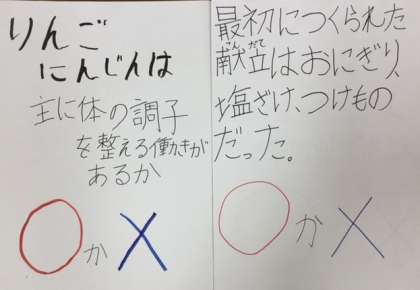 りんご
にんじんは
主に体の調子
を整える働きが
あるか
○か×
最初につくられた
献立はおにぎり、
こん だて
塩ざけ、つけもの
だった。
○か×